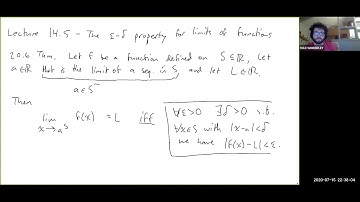 Lecture 14.5 - The ε-δ property for limits of functions
20.6 Thm. Let f be a function defined on S⊆ℝ, let
a∈ℝ that is the limit of a seq. in S, and let L∈ℝ.
a∈S⁻
Then
lim x→aˢ f(x) = L iff
∀ε>0 ∃δ>0 s.t.
∀x∈S with |x-a|<δ
we have |f(x)-L|<ε.
2020-07-15 22:38:04